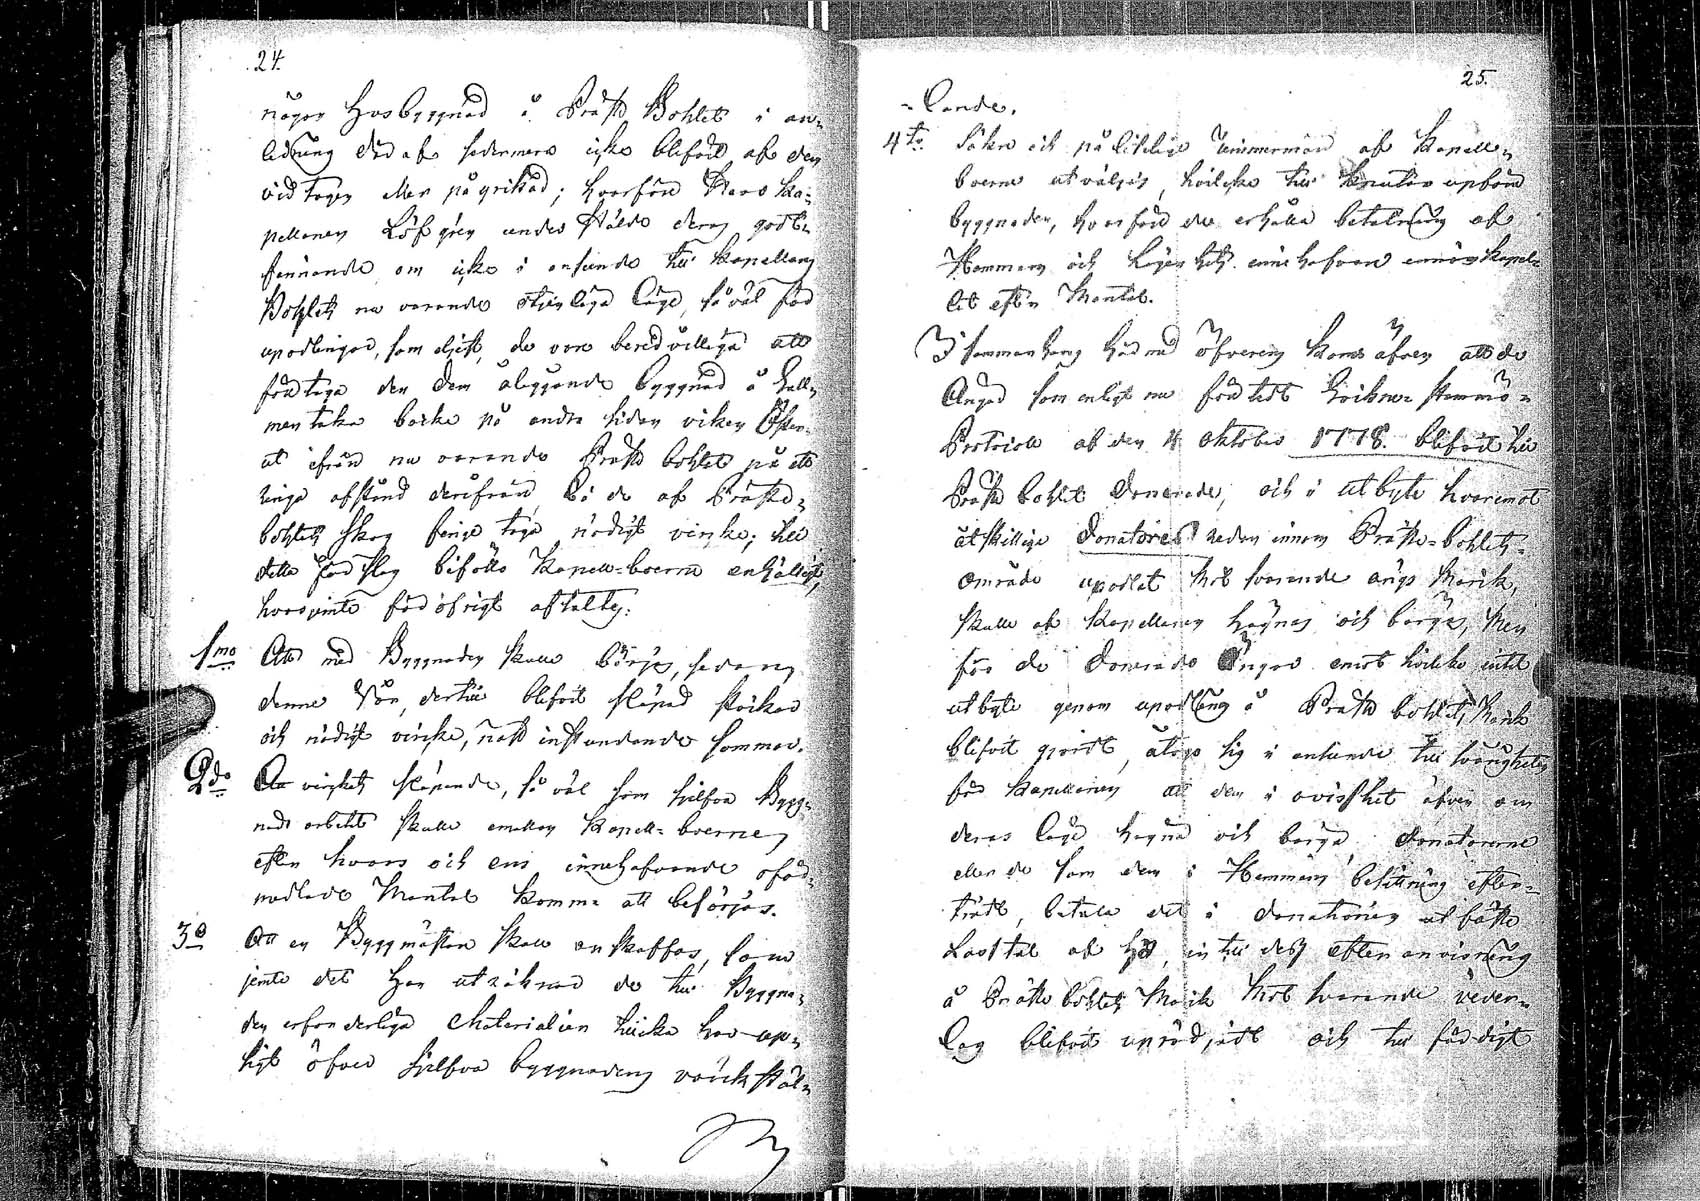 24.
någon Husbyggnad å Präste Bohlet i an-
ledning däraf sedermera icke blifvit af dem
vidtagen eller påyrkad; hvarföre Herr Ka-
pellanen Löfgren under Hälds deras godt-
finnande om icke i anseende till Kapellans
Bohlets nu varande olägliga läge, så väl för
uppodlingar, som eljest, de voro beredvillige att
företaga den dem åliggande byggnad å
backe på andra sidan viken Öster-
ut ifrån nu varande Präste bohlet på ett
ringa afstånd derifrån då de af Präste-
bohlets skog finge taga nödigt virke; till
detta förslag biföllo Kapell-boerne enhälligt,
hvarjemte för öfrigt aftaltes:
1mo Att med Byggnaden skulle börjas, sedan
denne Vår, dertill blifvit släpad stockar
och nödigt virke, näst instundande sommar.
2do Att virkets släpande, så väl som sjelfva Bygg-
nads arbetet skulle emellan Kapell-boerne
efter hvars och ens innehafvande oför-
medlade Mantal komma att besörjas.
3o Att en Byggmästare skulle anskaffas, som
jemte det han uträknar de till Byggna-
den erforderliga Materialier tillika har up-
sigt öfver sjelfva byggnadens värkstäl-
25.
-lande.
4to Säkre och pålitelige Timmermän af Kapell-
boerne utväljes, hvilcke till Knutar upföra
byggnaden, hvarföre de erhålla betalning af
Hemmans och Lägenhets innehafvare inom Kapel-
let efter Mantal.
I sammanhang härmed öfverens koms äfven att de
Ängar som enligt nu företedt Sockne-stämmo-
Protocoll af den 4 October 1778 blifvit till
Präste bohlet donerade, och i utbyte hvaremot
åtskillige Donatorer redan innom Präste-bohlets-
område upodlat mot svarande ängs Mark,
skulle af Kapellanen hägnas och bärgas, Men
för de donerade Ängar emot hvilcka intet
utbyte genom upodling å Präste bohlets Mark
blifvit gjordt, åtogo sig i anseende till svårigheten
för Kapellanen att den i ovisshet äfven om
deras läge hägna och bärga Donatorerne
eller de som dem i Hemmans besittning efter-
trädt, betala det i donationen utfäste
Lasstal af Hö, in till dess efter anvisning
å Präste bohlets Mark mot svarande veder-
lag blifvit uprödjadt och till färdigt